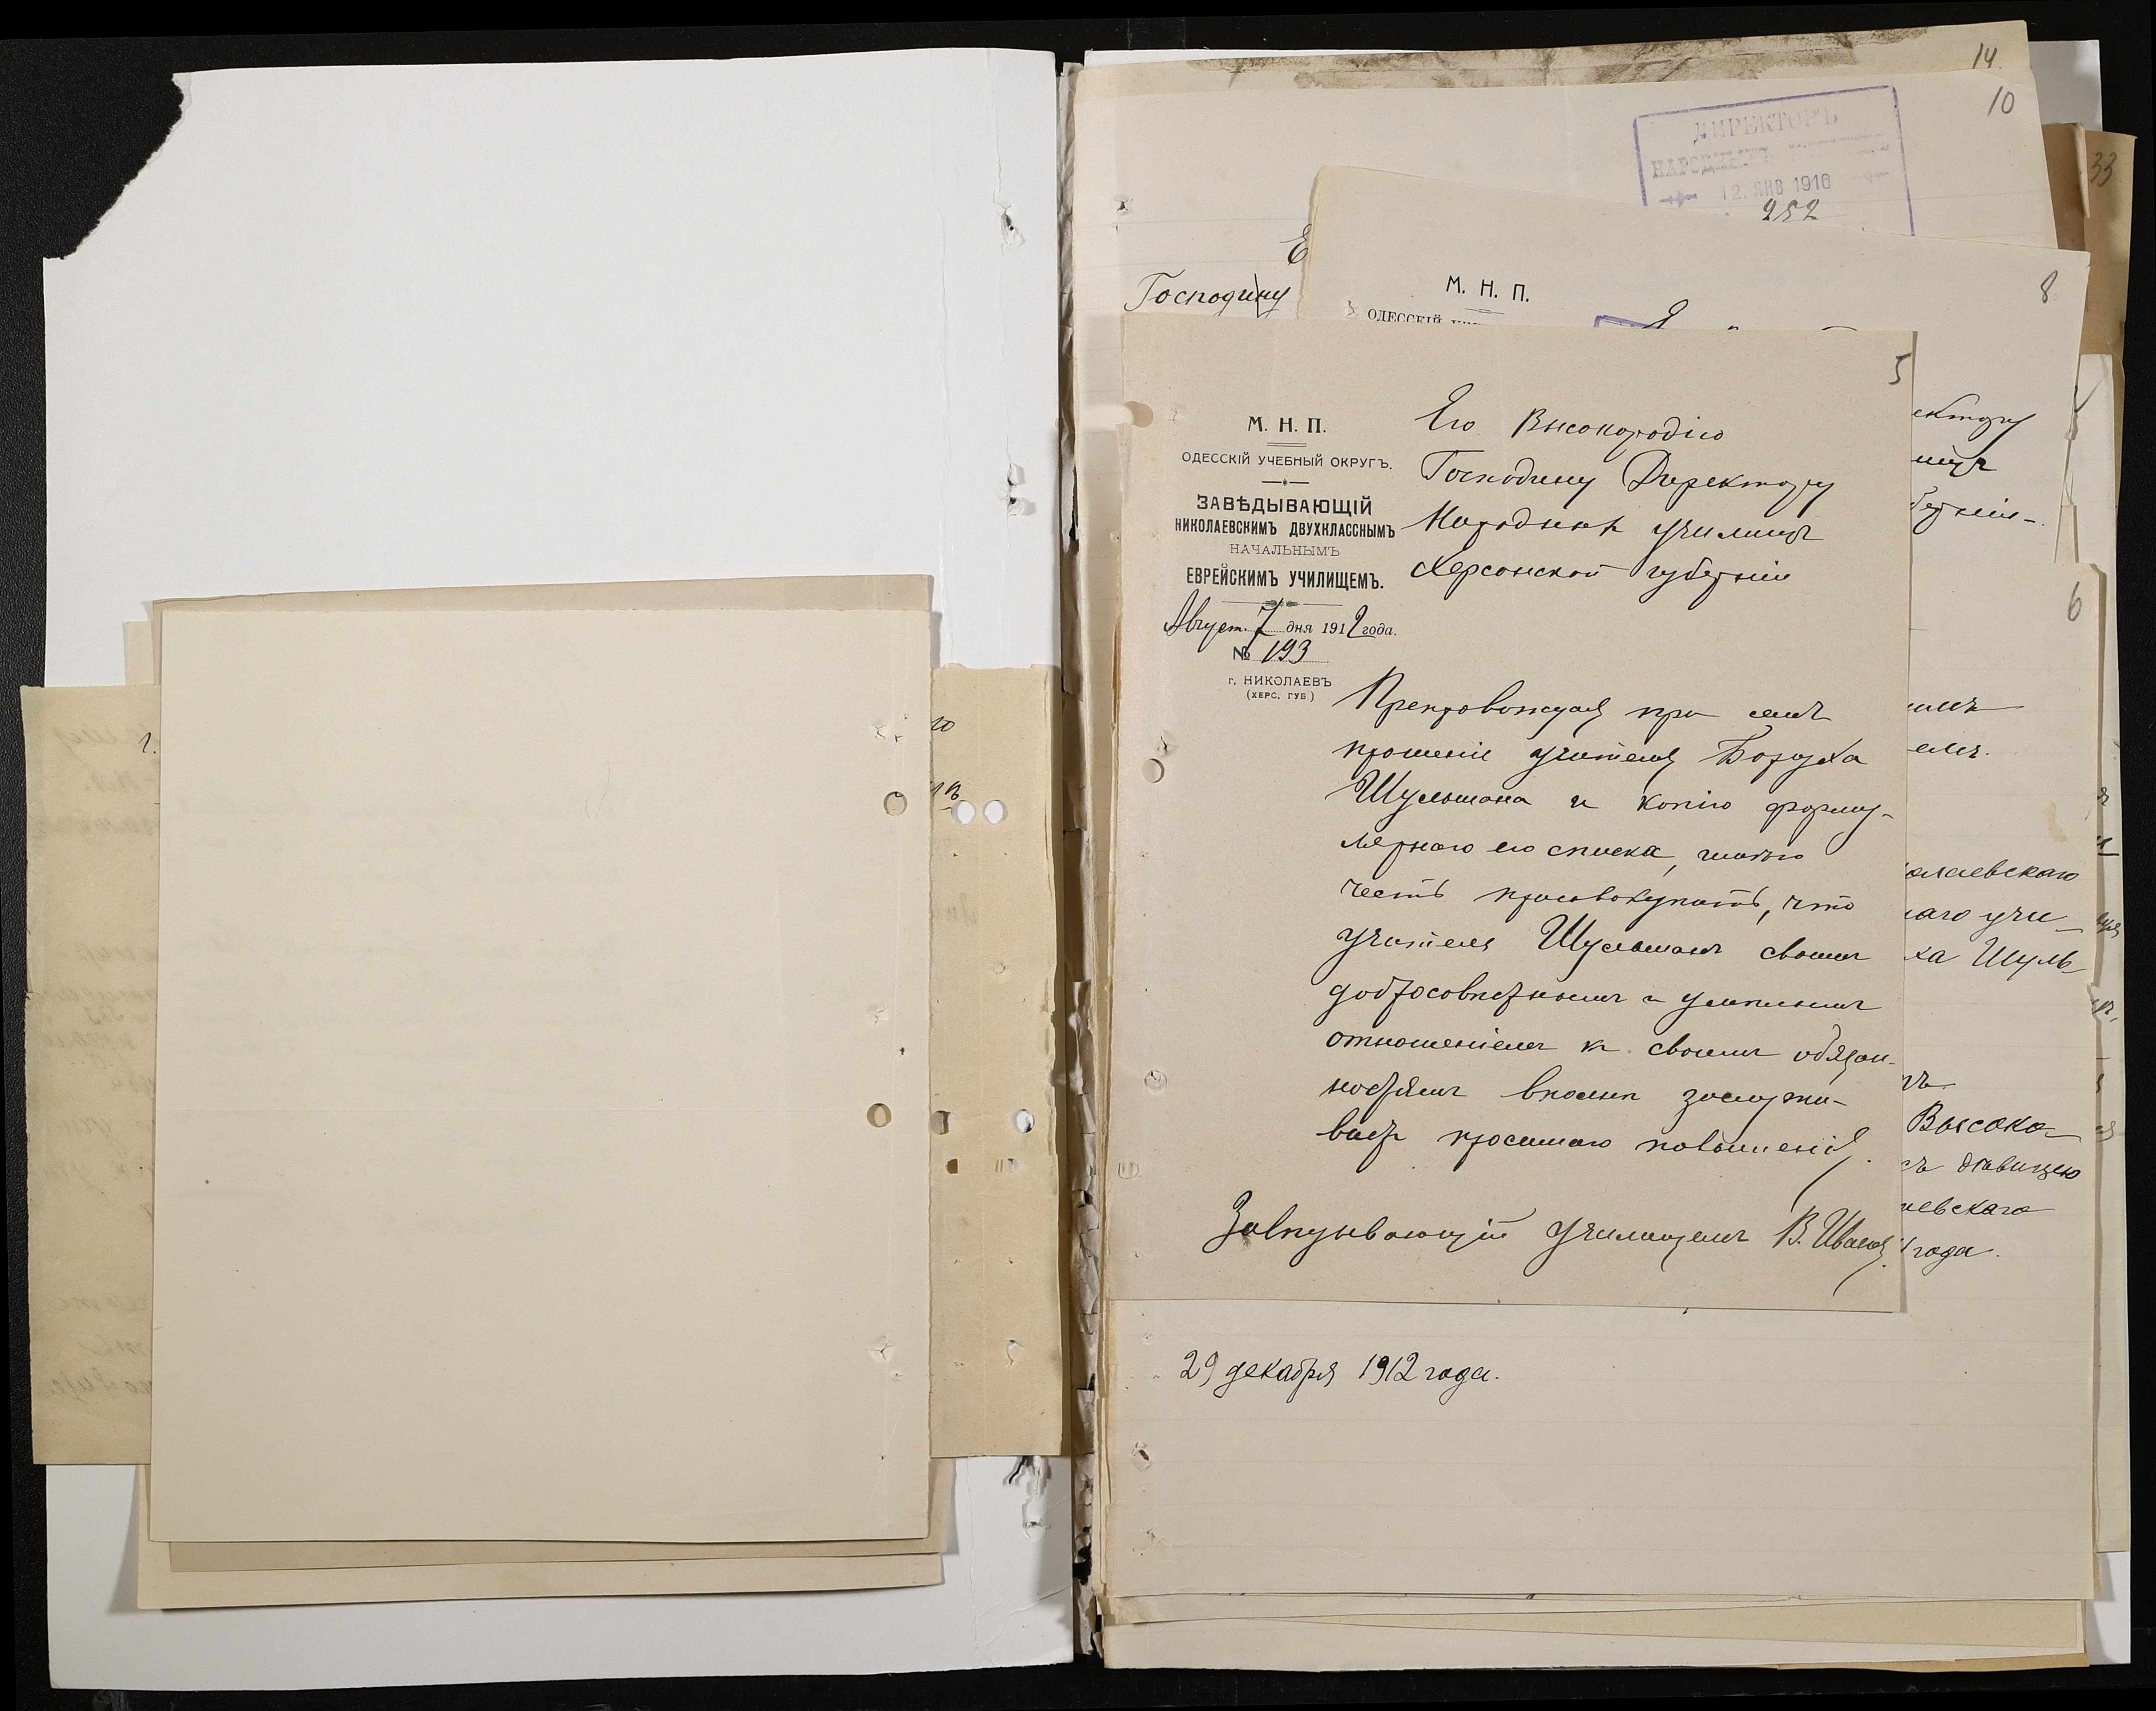 14
10
ДИРЕКТОРЪ
НАРОДНЫХЪ
12. ЯНВ 1916
252
33
Господину
8
М. Н. П.
ОДЕССКІЙ
5
М. Н. П.
ОДЕССКІЙ УЧЕБНЫЙ ОКРУГЪ.
ЗАВѢДЫВАЮЩІЙ
НИКОЛАЕВСКИМЪ ДВУХКЛАССНЫМЪ
НАЧАЛЬНЫМЪ
ЕВРЕЙСКИМЪ УЧИЛИЩЕМЪ.
Август. 7 дня 1912 года.
№ 193
г. НИКОЛАЕВЪ
(ХЕРС. ГУБ.)
Его Высокородію
Господину Директору
Народныхъ училищъ
Херсонской губерніи
Препровождая при семъ
прошеніе учителя Боруха
Шульмана и копію форму-
лярнаго его списка, имѣю
честь присовокупить, что
учитель Шульманъ своимъ
добросовѣстнымъ и умѣлымъ
отношеніемъ къ своимъ обязан-
ностямъ вполнѣ заслужи-
ваетъ просимаго повышенія.
Завѣдывающій училищемъ В. Иванов
ектору
ищъ
берніи
6
олаевскаго
наго учи-
ха Шуль-
Высоко-
невскаго
года.
29 декабря 1912 года.